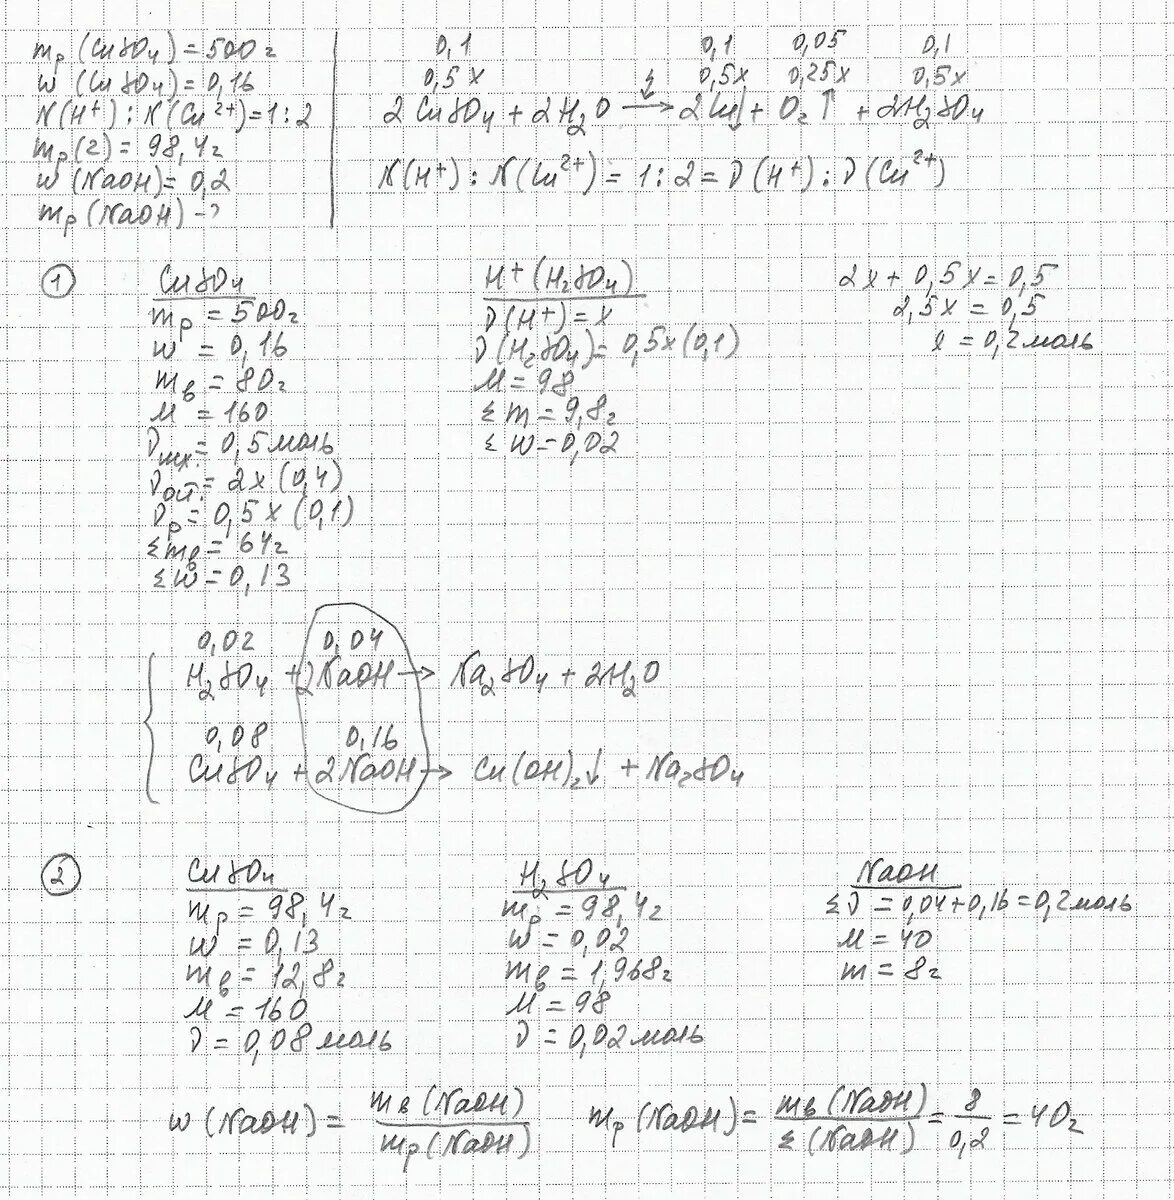 mр(CuSO4) = 500г
w(CuSO4) = 0,16
N(H+) : N(Cu2+) = 1:2
mр(2) = 98,4г
w(NaOH) = 0,2
mр(NaOH) - ?
0,1 0,1 0,05 0,1
0,5x 0,5x 0,25x 0,5x
2CuSO4 + 2H2O → 2Cu↓ + O2↑ + 2H2SO4
N(H+) : N(Cu2+) = 1:2 = ν(H+) : ν(Cu2+)
1
CuSO4
mр = 500г
w = 0,16
mв = 80г
M = 160
ν = 0,5 моль
νост. = 2x (0,4)
νр = 0,5x (0,1)
Σmв = 64г
Σw = 0,13
H+ (H2SO4)
ν(H+) = x
ν(H2SO4) = 0,5x (0,1)
M = 98
Σm = 9,8г
Σw = 0,02
2x + 0,5x = 0,5
2,5x = 0,5
x = 0,2 моль
0,02 0,04
H2SO4 + 2NaOH → Na2SO4 + 2H2O
0,08 0,16
CuSO4 + 2NaOH → Cu(OH)2↓ + Na2SO4
2
CuSO4
mр = 98,4г
w = 0,13
mв = 12,8г
M = 160
ν = 0,08 моль
H2SO4
mр = 98,4г
w = 0,02
mв = 1,968г
M = 98
ν = 0,02 моль
NaOH
Σν = 0,04 + 0,16 = 0,2 моль
M = 40
m = 8г
w(NaOH) = mв(NaOH) / mр(NaOH)
mр(NaOH) = mв(NaOH) / Σ(NaOH) = 8 / 0,2 = 40г